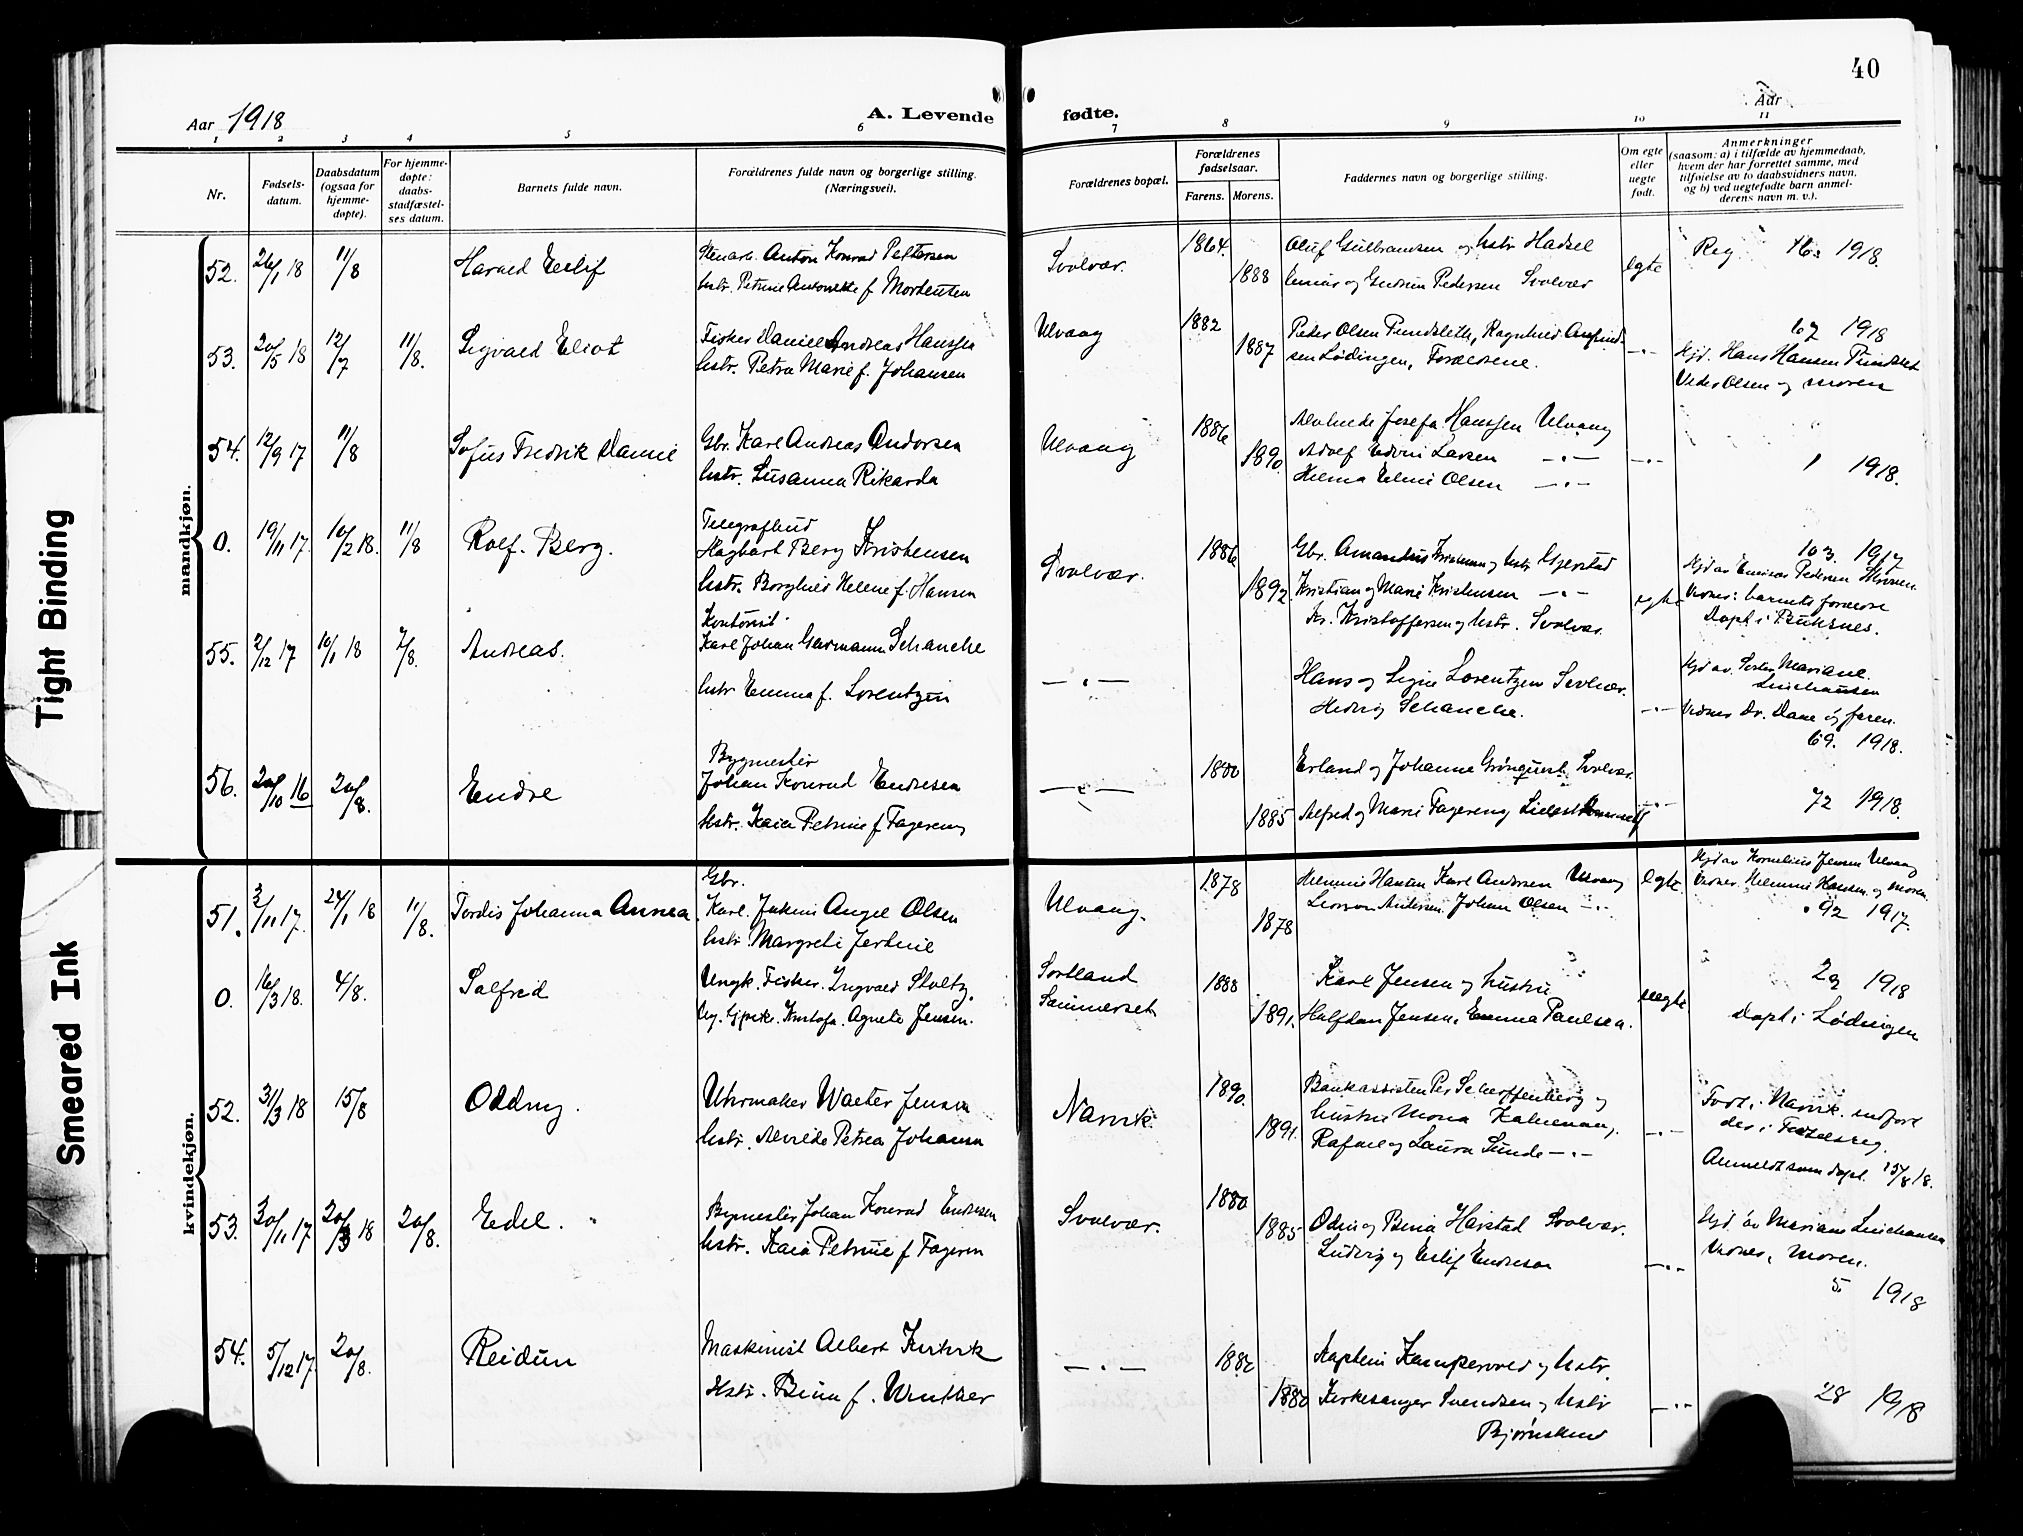 40
Aar 1918
A. Levende fødte.
Aar
1 2 3 4 5 6 7 8 9 10 11
Nr.
Fødsels-
datum.
Daabsdatum
(ogsaa for
hjemme-
døpte).
For hjemme-
døpte:
daabs-
stadfæstel-
ses datum.
Barnets fulde navn.
Forældrenes fulde navn og borgerlige stilling.
(Næringsvei).
Forældrenes bopæl.
Forældrenes
fødselsaar.
Farens. Morens.
Faddernes navn og borgerlige stilling.
Om egte
eller
uegte
født.
Anmerkninger
(saasom: a) i tilfælde av hjemmedaab,
hvem der har forrettet samme, med
tilføielse av to daabsvidners navn,
og b) ved uegtefødte barn anmel-
derens navn m. v.).
mandkjøn.
52. 26/1 18 11/8 Harald Eilif
Anton Konrad Pettersen
hstr. Petrine Antonette f. Mortensen
Svolvær.
1864. 1888
Oluf Gulbransen og hstr Hadsel
og Gudrun Pedersen Svolvær
egte
Reg 16. 1918.
53. 20/5 18 12/7 11/8. Sigvald Eliot
Fisker Daniel Andreas Hanssen
hstr. Petra Marie f. Johansen
Ulvaag
1882 1887
Peder Olsen Pundslett, Ragnhild
sen Lødingen, Forældrene.
—·—
67 1918
Hjd. Hans Hansen Pundslet
Peder Olsen og moren
54. 12/9 17 11/8 Sofus Fredrik Daniel
Gbr. Karl Andreas Andersen
hstr. Susanna Rikarda
Ulvaag
1886 1890.
Alvhilde Josefa Hanssen Ulvaag
Adolf Edvin Larsen —·—
Helma Eline Olsen —·—
—·—
1 1918.
0. 19/11 17. 10/2 18. 11/8 Rolf. Berg.
Telegrafbud
Hagbart Berg Kristensen
hstr. Borghild Helene f. Hansen
Svolvær.
1886 1892.
Gbr. Amandus Kristensen og hstr Gjerstad
Kristian og Marie Kristensen —·—
Kr. Kristoffersen og hstr. Svolvær.
egte
103. 1917
Hjd av Pedersen
Vidner: barnets forældre
Døpt i Buksnes.
55. 2/12 17 10/1 18 7/8. Andreas.
Kontorist
Karl Johan Garmann Schanche
hstr Emma f. Lorentzen
—·—
Hans og Signe Lorentzen Svolvær.
Hedvig Schanche.
—·—
Hjd av. Søster Mariane
Vidner Dr. Dane og faren.
69. 1918.
56. 20/10 16 20/8. Endre
Bygmester
Johan Konrad Endresen
Hstr. Kaia Petrine f Fagereng
—·—
1880 1885
Erland og Johanne Grönquist Svolvær.
Alfred og Marie Fagereng
—·—
72 1918.
kvindekjøn.
51. 3/11 17. 24/1 18 11/8. Tordis Johanna Annea
Gbr.
Karl Angel Olsen
hstr. Margrete
Ulvaag.
1878 1878
Helmine Hansen Karl Andersen Ulvaag
Andersen. Johan Olsen —·—
egte
Hjd av Kornelius Jensen Ulvaag
Vidner. Helmine Hansen og moren.
92 1917.
0. 16/3 18. 4/8. Salfred
Ungk. Fisker. Ingvald Stoltz.
Ug. Gpike. Kristofa. Agnete Jensen.
Sortland
Sommerset
1888 1891.
Karl Jensen og hustru
Halfdan Jensen. Emma Paulsen.
uegte
29 1918
Døpt i Lødingen
52. 31/3 18 15/8 Oddny.
Uhrmaker Walter Jensen
hstr. Alvilde Petrea Johansen
Narvik.
1890. 1891.
Bankassistent Per Scharffenberg og
hustru Mona
Rafael og Laura Sunde —·—
—·—
Født i Narvik. indført
der i Fødselsreg.
Anmeldt som døpt. 15/8 18.
53. 30/11 17 20/3 18 20/8. Edel.
Bygmester Johan Konrad Endresen
hstr. Kaia Petrine f Fageren
Svolvær.
1880 1885
Odin og Bina Harstad Svolvær.
Ludvig og Eilif Endresen
—·—
Hjd. av Mariane
Vidner, moren.
5. 1918
54. 5/12 17. 20/8. Reidun
Maskinist Albert
Hstr. Bina f. Winther
—·—
1882 1880
Kaptein og hstr.
Kirkesanger Svendsen og hstr
—·—
28 1918
Tight Binding
Smeared Ink